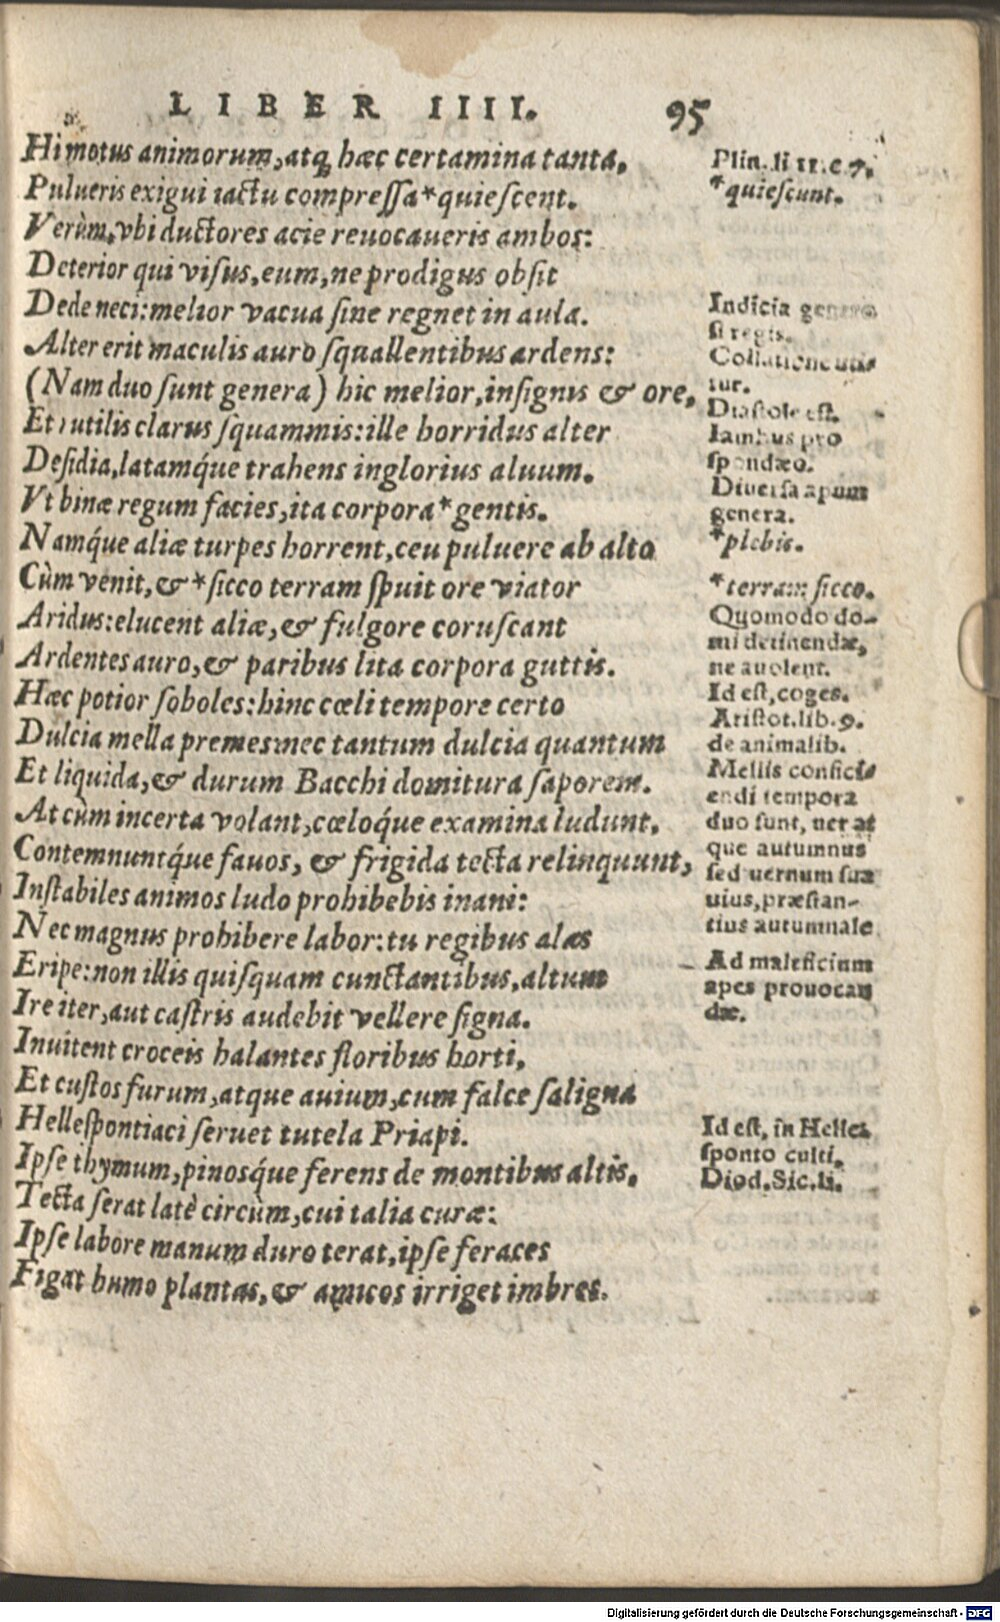 LIBER IIII. 95
Hi motus animorum, atq̃ hæc certamina tanta,
Pulueris exigui iactu compressa *quiescent.
Verùm, vbi ductores acie reuocaueris ambos:
Deterior qui visus, eum, ne prodigus obsit
Dede neci: melior vacua sine regnet in aula.
Alter erit maculis auro squallentibus ardens:
(Nam duo sunt genera) hic melior, insignis & ore,
Et rutilis clarus squammis: ille horridus alter
Desidia, latamq́ue trahens inglorius aluum.
Vt binæ regum facies, ita corpora *gentis.
Namq́ue aliæ turpes horrent, ceu puluere ab alto
Cùm venit, & *sicco terram spuit ore viator
Aridus: elucent aliæ, & fulgore coruscant
Ardentes auro, & paribus lita corpora guttis.
Hæc potior soboles: hinc cœli tempore certo
Dulcia mella premes: nec tantum dulcia quantum
Et liquida, & durum Bacchi domitura saporem.
At cùm incerta volant, cœloq́ue examina ludunt,
Contemnuntq́ue fauos, & frigida tecta relinquunt,
Instabiles animos ludo prohibebis inani:
Nec magnus prohibere labor: tu regibus alas
Eripe: non illis quisquam cunctantibus, altum
Ire iter, aut castris audebit vellere signa.
Inuitent croceis halantes floribus horti,
Et custos furum, atque auium, cum falce saligna
Hellespontiaci seruet tutela Priapi.
Ipse thymum, pinosq́ue ferens de montibus altis,
Tecta serat latè circùm, cui talia curæ:
Ipse labore manum duro terat, ipse feraces
Figat humo plantas, & amicos irriget imbres.
Plin. li 11. c 7.
*quiescunt.
Indicia genero
si regis.
Collatione uti-
tur.
Diastole est.
Iambus pro
spondæo.
Diuersa apum
genera.
*plebis.
*terram sicco.
Quomodo do-
mi detinendæ,
ne auolent.
Id est, coges.
Aristot. lib. 9.
de animalib.
Mellis confici-
endi tempora
duo sunt, uer at
que autumnus
sed uernum sua
uius, præstan-
tius autumnale
Ad maleficium
apes prouocan
dæ.
Id est, in Helles
sponto culti,
Diod. Sic. li.
Digitalisierung gefördert durch die Deutsche Forschungsgemeinschaft - DFG